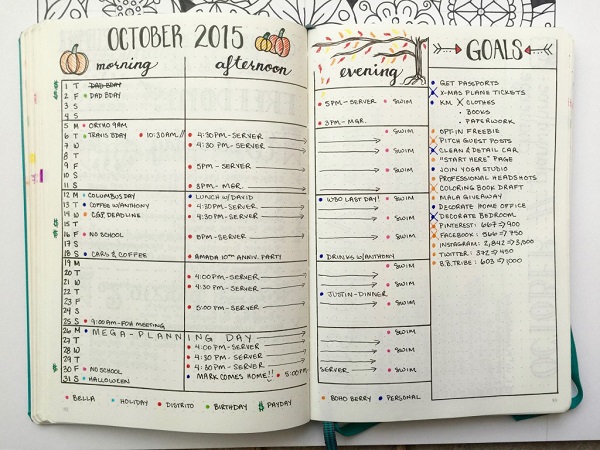 OCTOBER 2015
morning
afternoon
$ 1 T DAD BDAY
$ 2 F DAD BDAY
3 S
4 S
5 M ORTHO 9AM
6 T TRAVIS BDAY 10:30AM 4:30PM-SERVER
7 W 4:30PM-SERVER
8 T
9 F 5PM-SERVER
10 S
11 S 3PM-MGR.
12 M COLUMBUS DAY LUNCH w/DAVID
13 T COFFEE w/ANTHONY 4:30PM-SERVER
14 W DEADLINE 4:30PM-SERVER
$ 15 T
$ 16 F NO SCHOOL 5PM-SERVER
17 S
18 S CARS & COFFEE AMADA 10TH ANNIV. PARTY
19 M
20 T 4:00PM-SERVER
21 W 4:30PM-SERVER
22 T
23 F 5:00PM-SERVER
24 S
25 S 9:00AM-FOH MEETING
26 M MEGA-PLANNING DAY
27 T 4:00PM-SERVER
28 W 4:30PM-SERVER
29 T 4:30PM-SERVER
$ 30 F NO SCHOOL MARK COMES HOME!! 5:00PM
31 S HALLOWEEN
BELLA HOLIDAY DISTRITO BIRTHDAY $ PAYDAY
evening
5PM-SERVER SWIM
3PM-MGR.
SWIM
SWIM
SWIM
WBO LAST DAY! SWIM
SWIM
DRINKS w/ANTHONY
SWIM
SWIM
JUSTIN-DINNER SWIM
SWIM
SWIM
SERVER SWIM
BOHO BERRY PERSONAL
GOALS
GET PASSPORTS
X-MAS PLANE TICKETS
KM X CLOTHES
• BOOKS
• PAPERWORK
OPT-IN FREEBIE
PITCH GUEST POSTS
CLEAN & DETAIL CAR
"START HERE" PAGE
JOIN YOGA STUDIO
PROFESSIONAL HEADSHOTS
COLORING BOOK DRAFT
MALA GIVEAWAY
DECORATE HOME OFFICE
DECORATE BEDROOM
PINTEREST: 667→900
FACEBOOK: 566→750
INSTAGRAM: 2,842→3,500
TWITTER: 372→450
B.B.TRIBE: 603→1,000